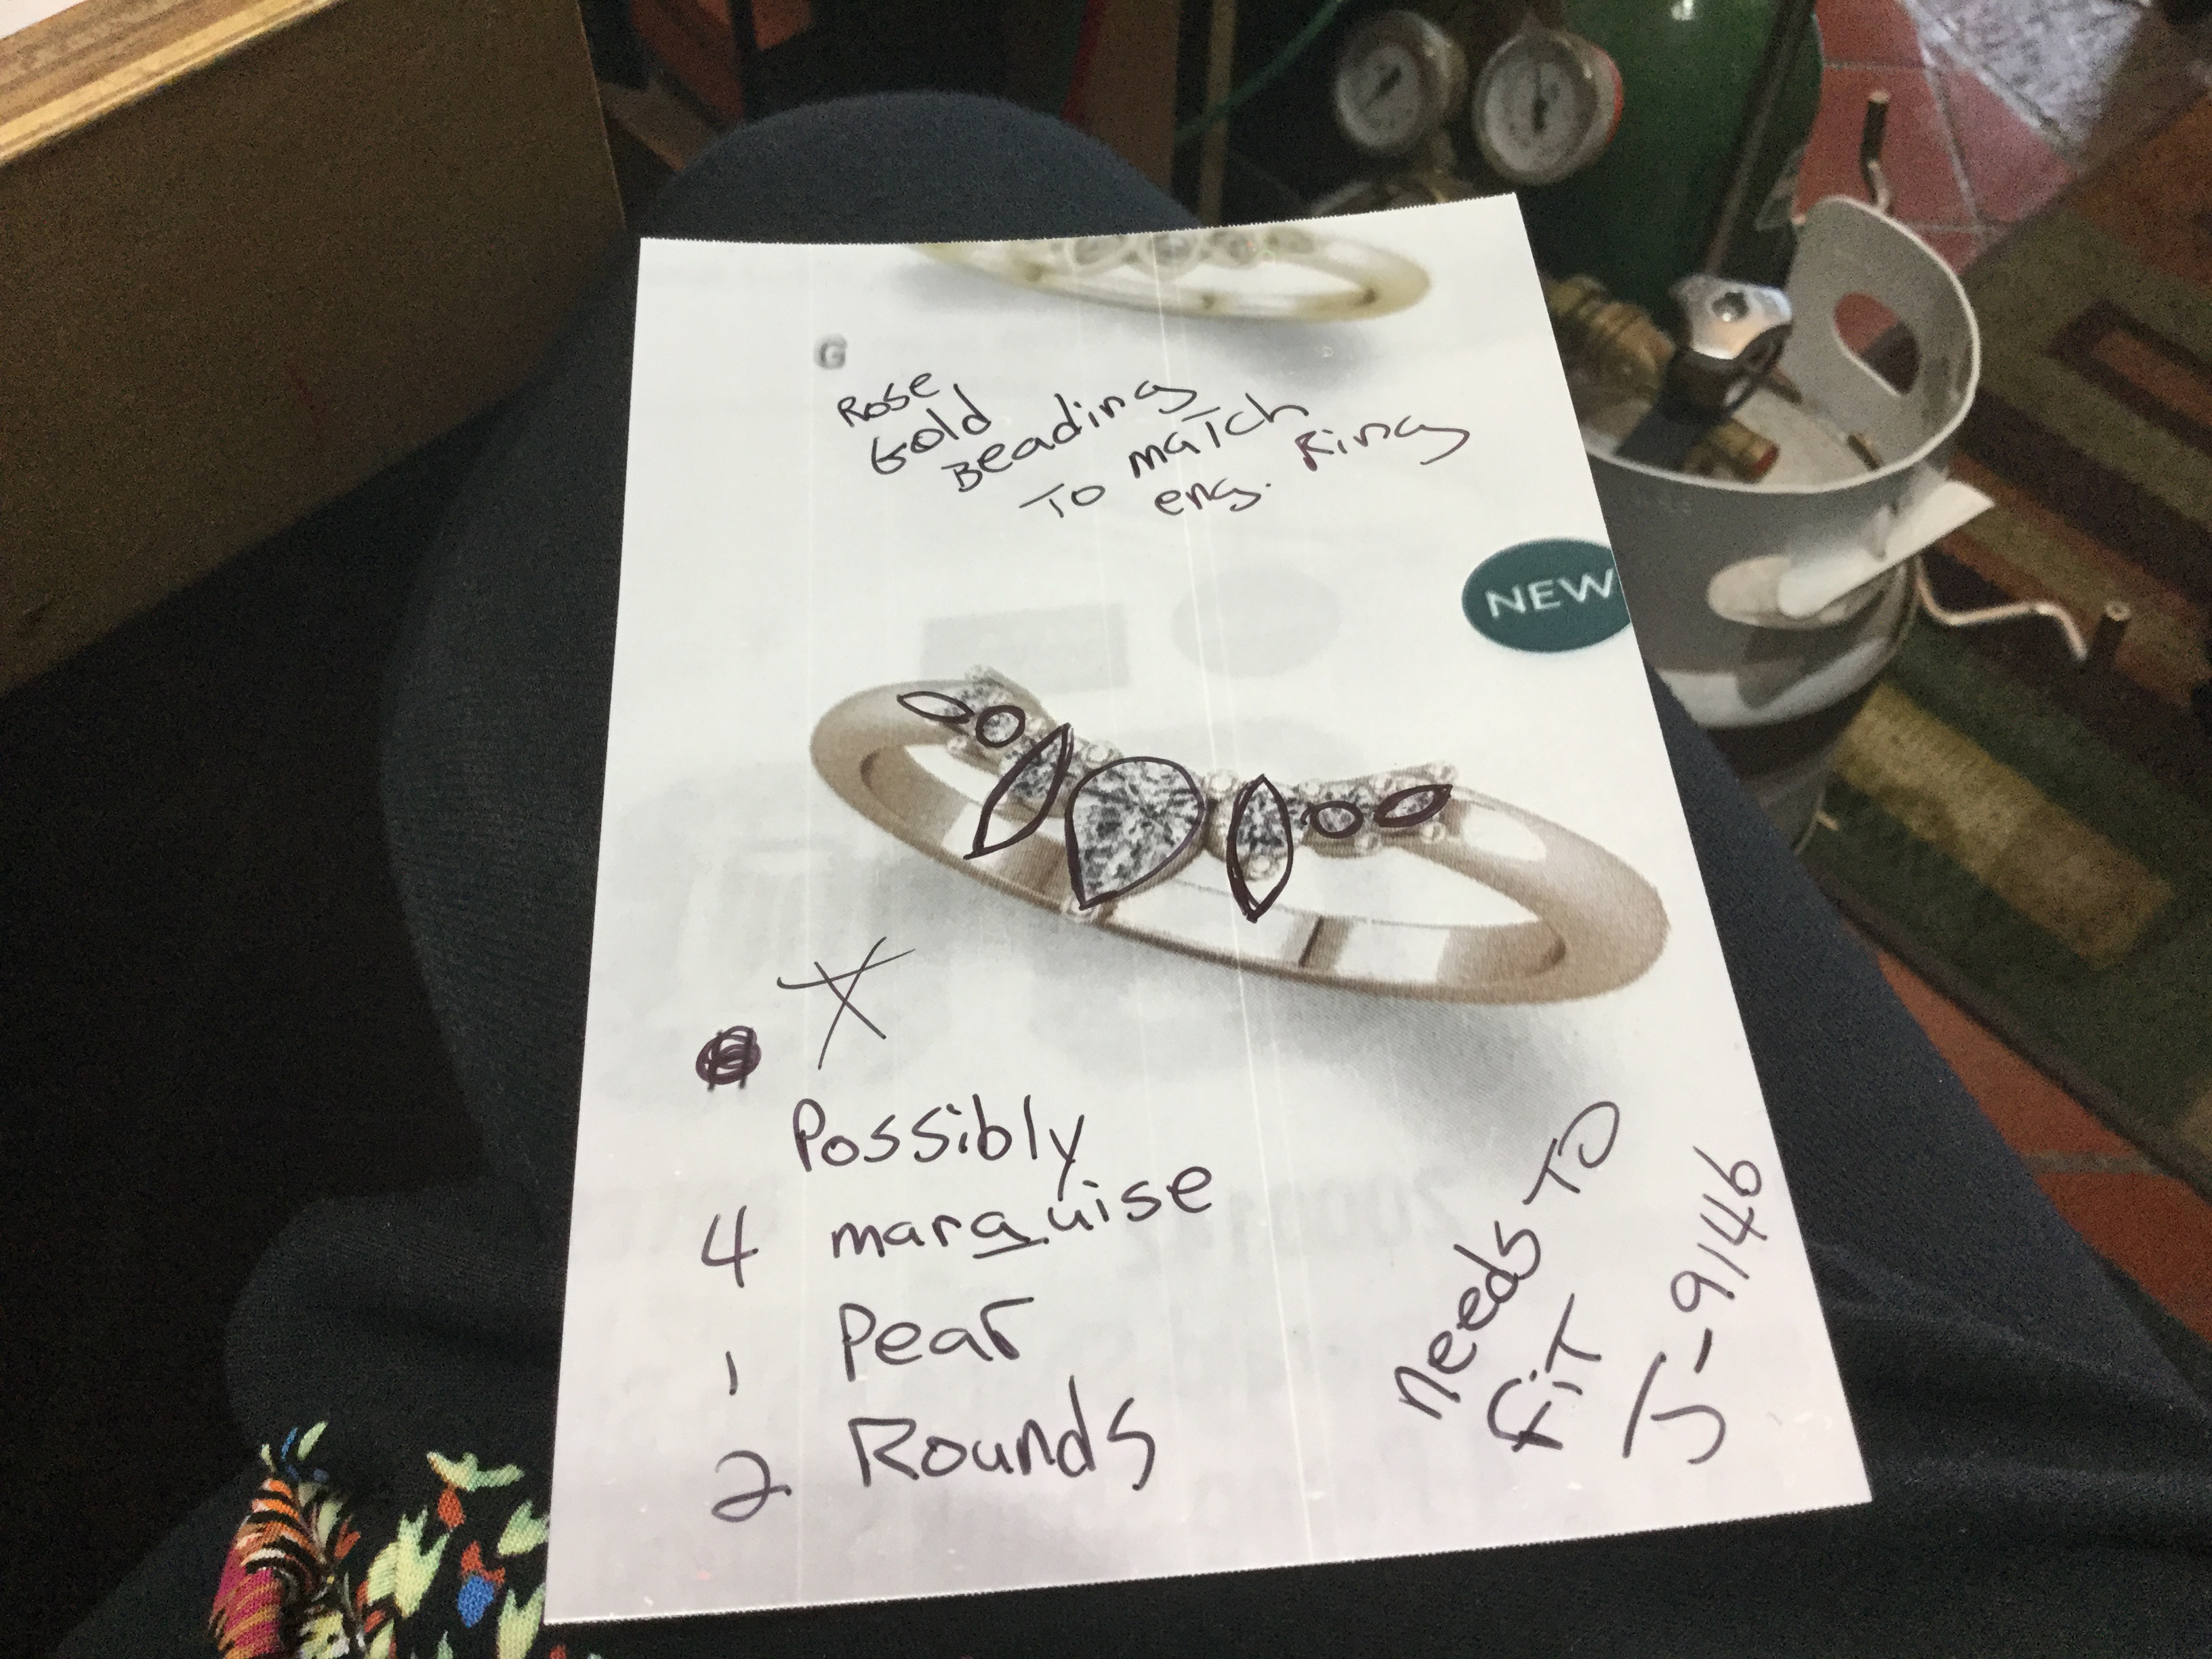 G
Rose
Gold
Beading
To match
eng. Ring
NEW
Possibly
4 marquise
1 Pear
2 Rounds
Needs To
Fit
J-9146